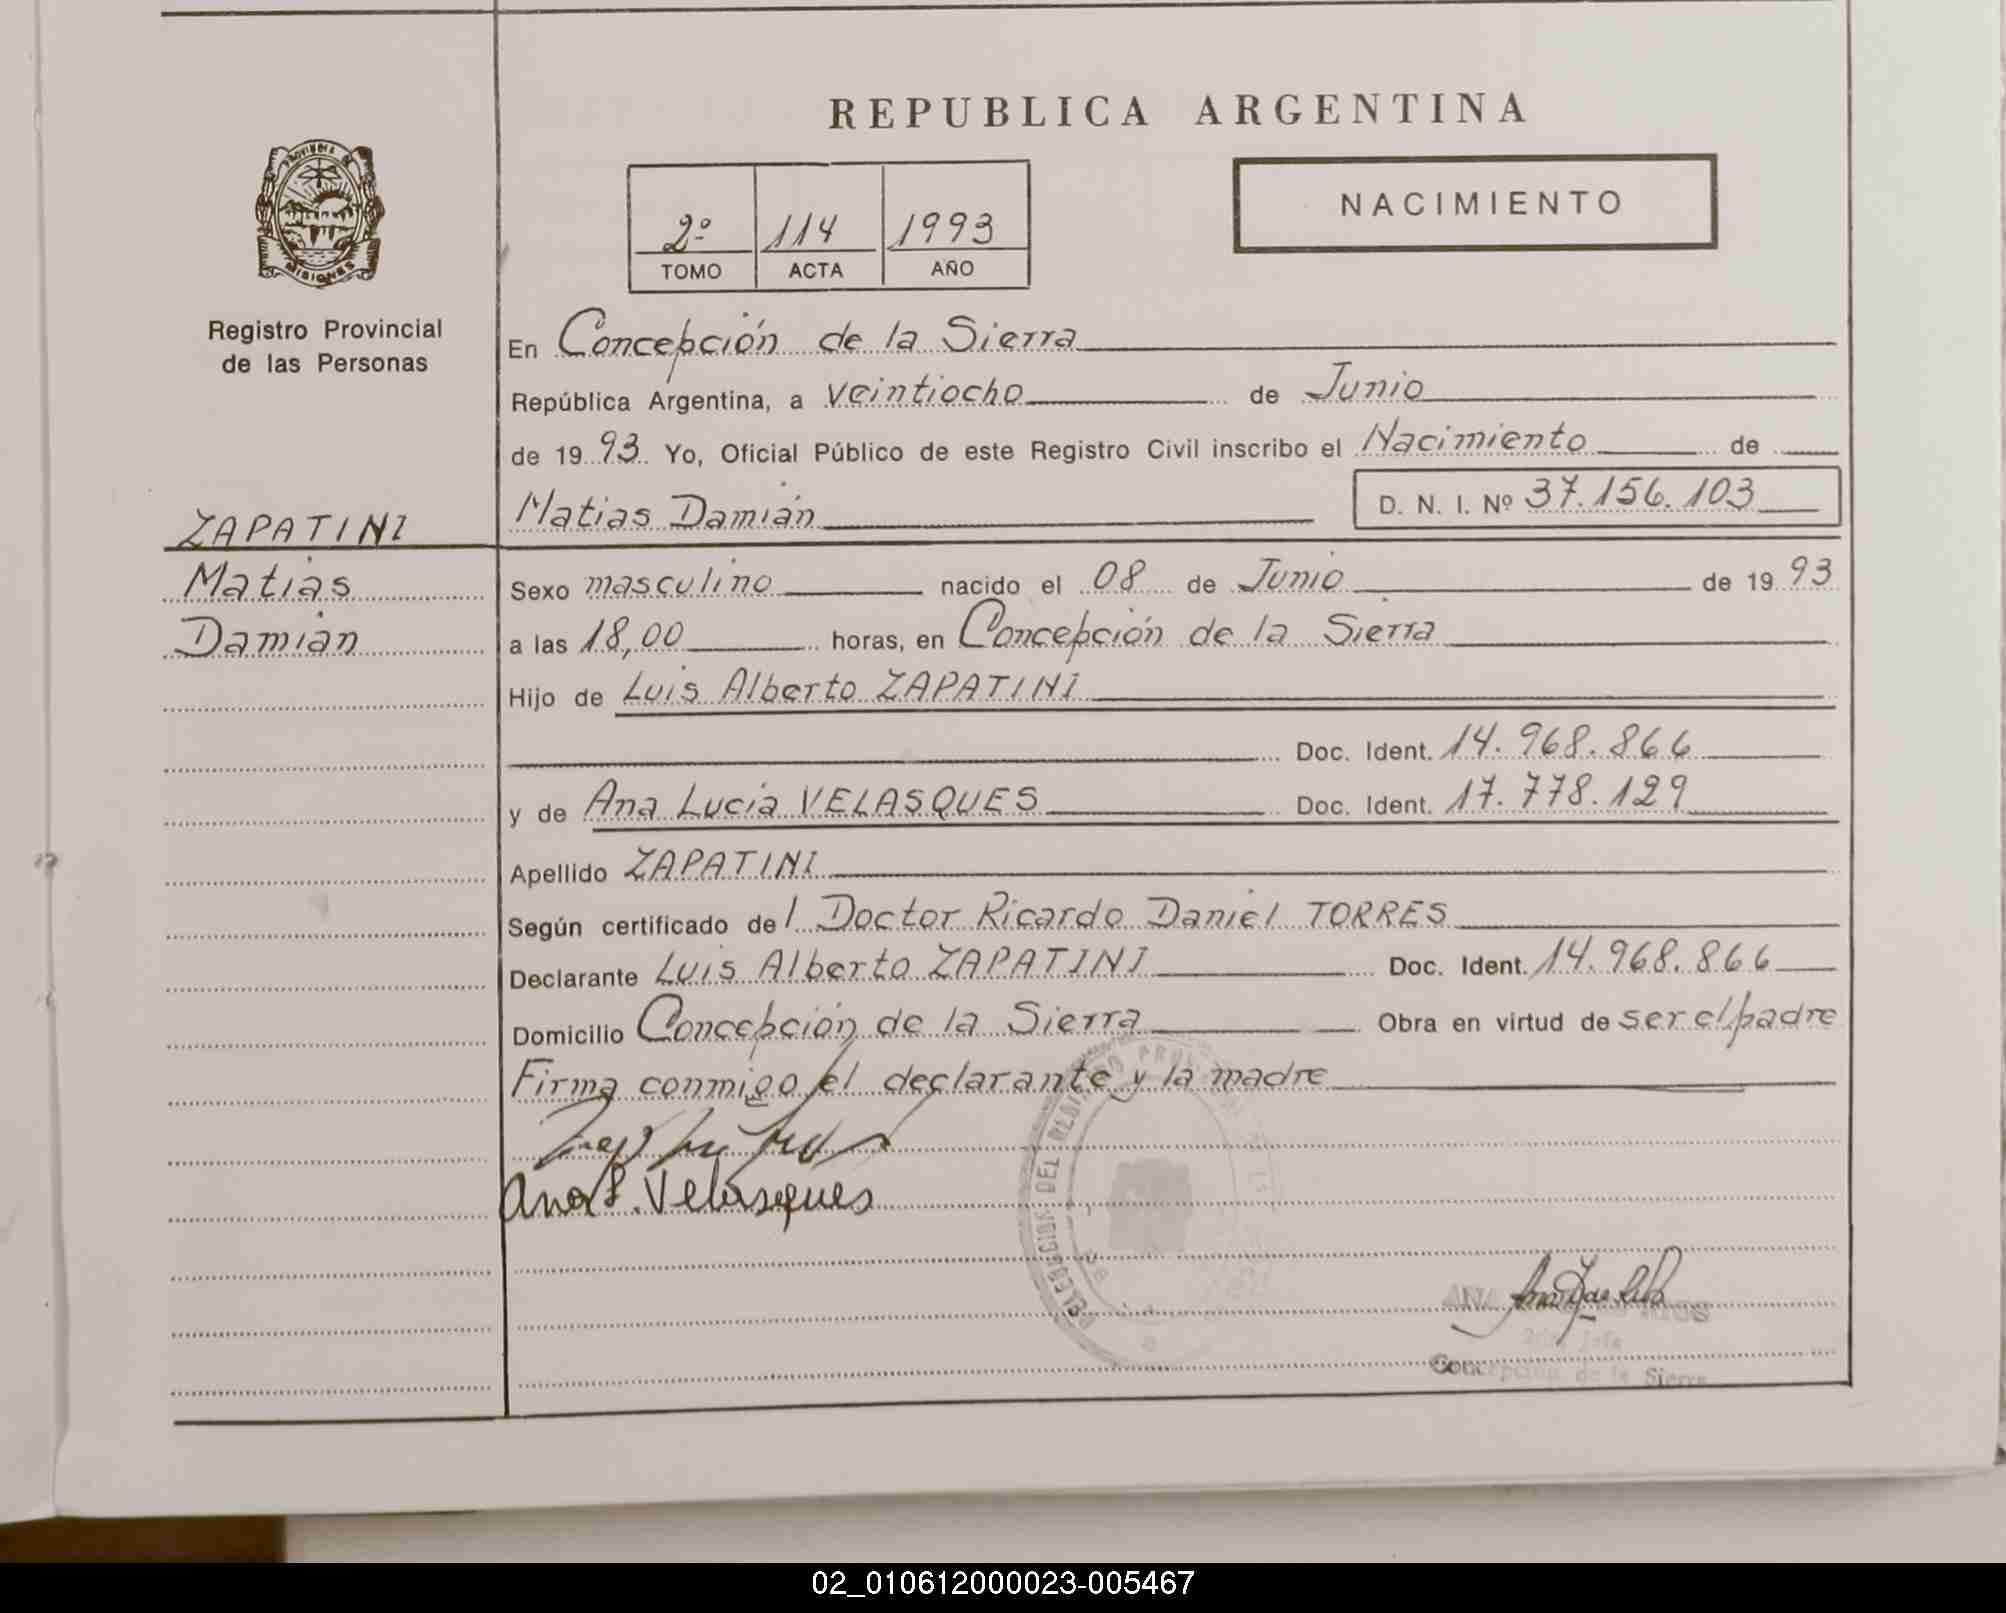 REPUBLICA ARGENTINA
PROVINCIA DE
MISIONES
Registro Provincial
de las Personas
2º 114 1993
TOMO ACTA AÑO
NACIMIENTO
En Concepción de la Sierra
República Argentina, a veintiocho de Junio
de 1993 Yo, Oficial Público de este Registro Civil inscribo el Nacimiento de
Matias Damián D. N. I. Nº 37.156.103
ZAPATINI
Matias
Damián
Sexo masculino nacido el 08 de Junio de 1993
a las 18,00 horas, en Concepción de la Sierra
Hijo de Luis Alberto ZAPATINI
Doc. Ident. 14.968.866
y de Ana Lucia VELASQUES Doc. Ident. 17.778.129
Apellido ZAPATINI
Según certificado del Doctor Ricardo Daniel TORRES
Declarante Luis Alberto ZAPATINI Doc. Ident. 14.968.866
Domicilio Concepción de la Sierra Obra en virtud de ser el padre
Firma conmigo el declarante y la madre
Ana L. Velasques
DEL REGISTRO
ANA
Concepción de la Sierra
02_010612000023-005467